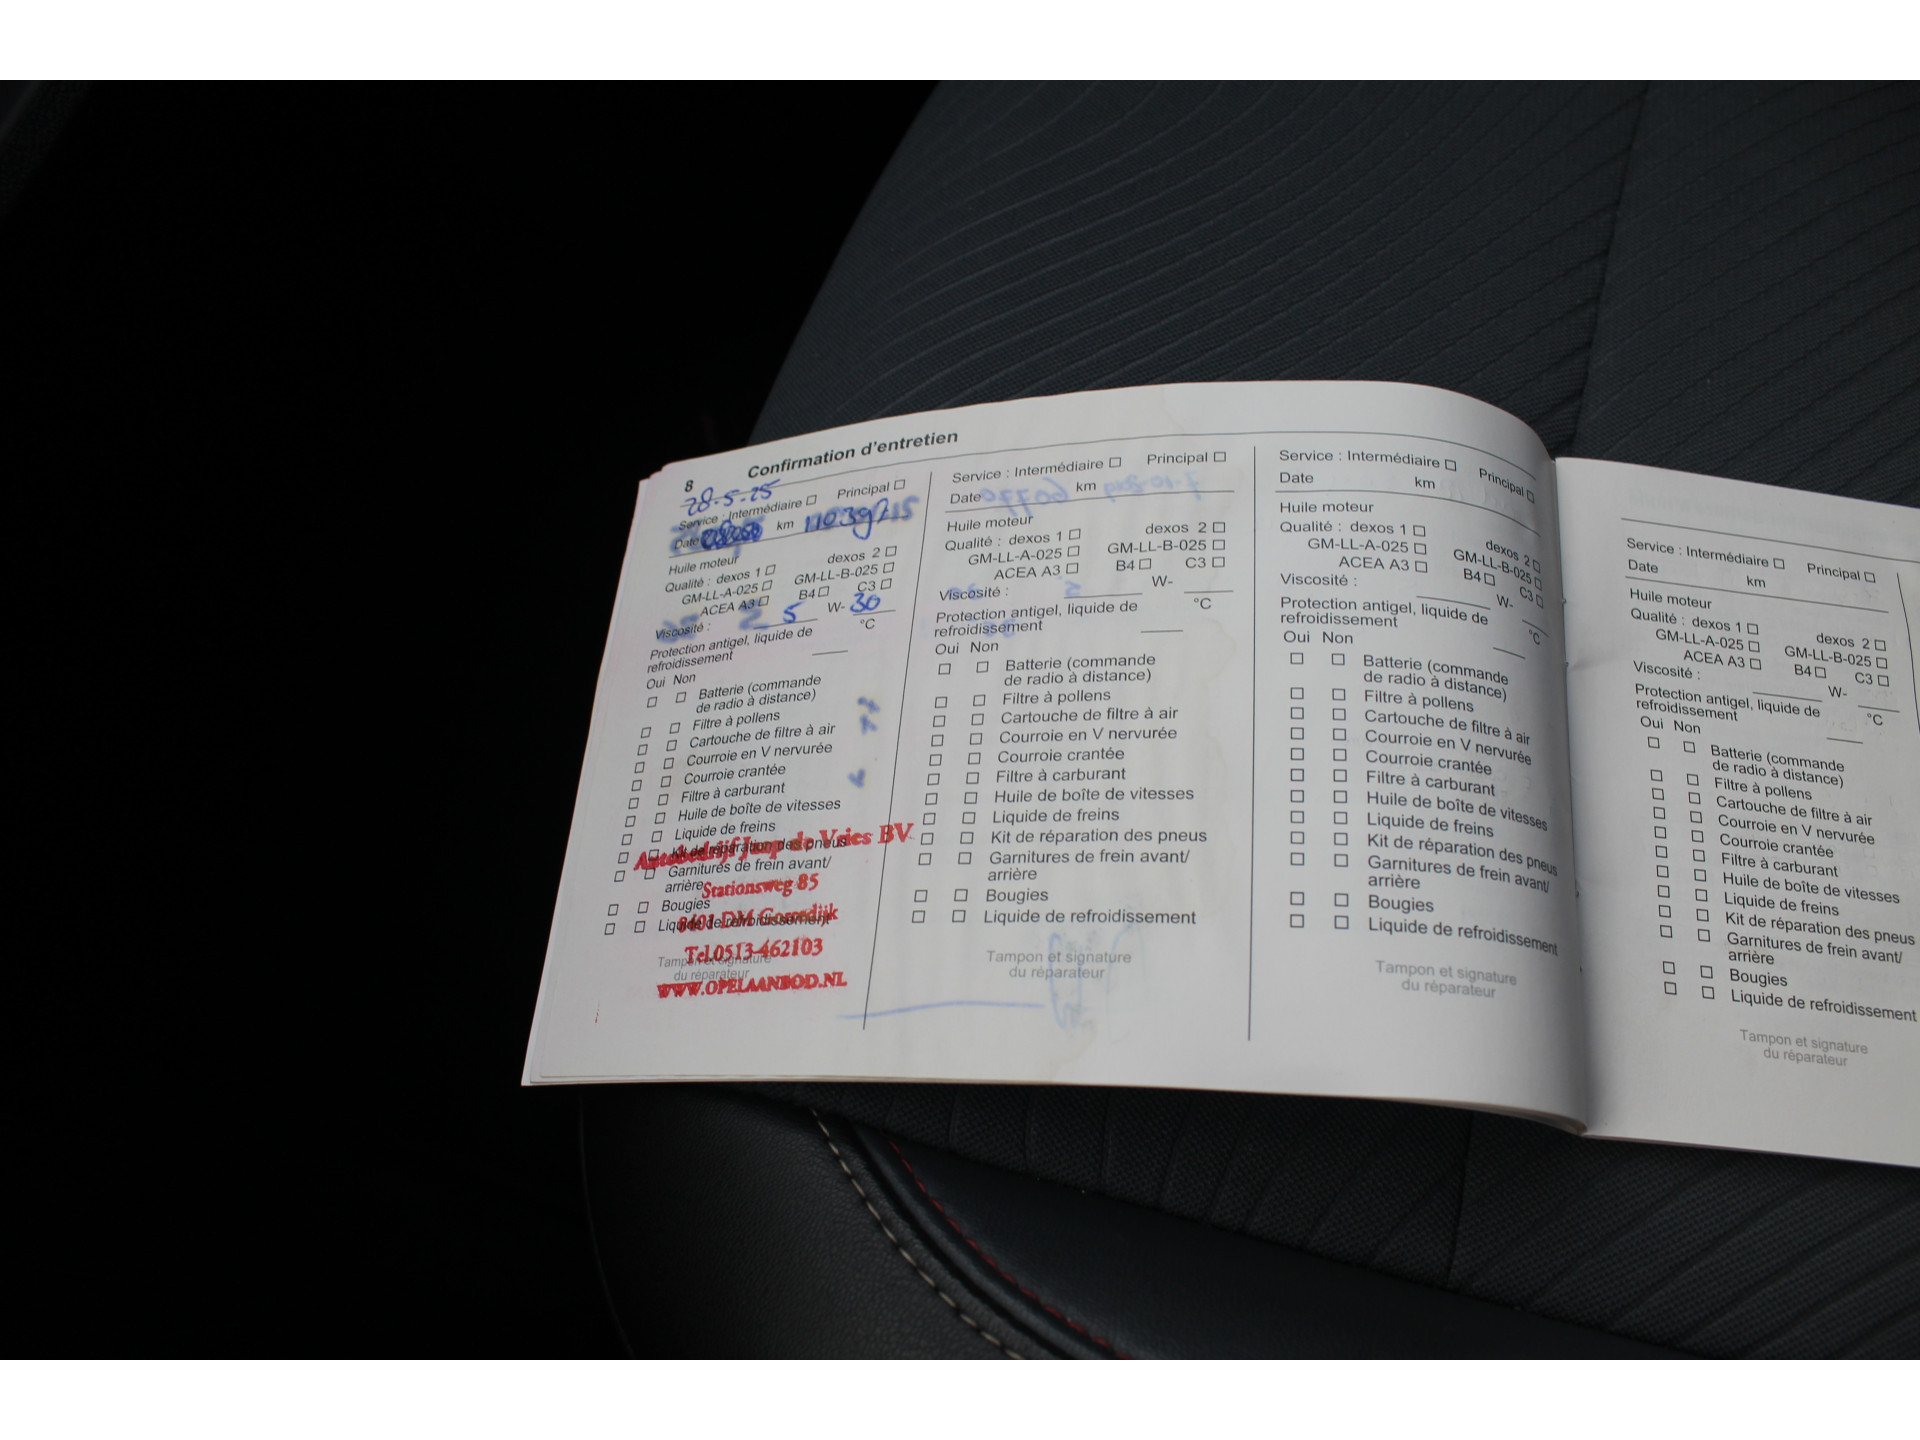 8 Confirmation d'entretien
28-5-25
Service : Intermédiaire ☐ Principal ☐
Date km
Huile moteur
Qualité : dexos 1 ☐ dexos 2 ☐
GM-LL-A-025 ☐ GM-LL-B-025 ☐
ACEA A3 ☐ B4 ☐ C3 ☐
Viscosité : 5 W- 30
Protection antigel, liquide de
refroidissement °C
Oui Non
☐ ☐ Batterie (commande
de radio à distance)
☐ ☐ Filtre à pollens
☐ ☐ Cartouche de filtre à air
☐ ☐ Courroie en V nervurée
☐ ☐ Courroie crantée
☐ ☐ Filtre à carburant
☐ ☐ Huile de boîte de vitesses
☐ ☐ Liquide de freins
☐ ☐ Kit de réparation des pneus
Autobedrijf Jaap de Vries BV
☐ ☐ Garnitures de frein avant/
arrière
Stationsweg 85
☐ ☐ Bougies
8401 DM Gorredijk
☐ ☐ Liquide de refroidissement
Tel.0513-462103
Tampon et signature
du réparateur
WWW.OPELAANBOD.NL
Service : Intermédiaire ☐ Principal ☐
Date km
Huile moteur
Qualité : dexos 1 ☐ dexos 2 ☐
GM-LL-A-025 ☐ GM-LL-B-025 ☐
ACEA A3 ☐ B4 ☐ C3 ☐
Viscosité : W-
Protection antigel, liquide de
refroidissement °C
Oui Non
☐ ☐ Batterie (commande
de radio à distance)
☐ ☐ Filtre à pollens
☐ ☐ Cartouche de filtre à air
☐ ☐ Courroie en V nervurée
☐ ☐ Courroie crantée
☐ ☐ Filtre à carburant
☐ ☐ Huile de boîte de vitesses
☐ ☐ Liquide de freins
☐ ☐ Kit de réparation des pneus
☐ ☐ Garnitures de frein avant/
arrière
☐ ☐ Bougies
☐ ☐ Liquide de refroidissement
Tampon et signature
du réparateur
Service : Intermédiaire ☐ Principal ☐
Date km
Huile moteur
Qualité : dexos 1 ☐ dexos 2 ☐
GM-LL-A-025 ☐ GM-LL-B-025 ☐
ACEA A3 ☐ B4 ☐ C3 ☐
Viscosité : W-
Protection antigel, liquide de
refroidissement °C
Oui Non
☐ ☐ Batterie (commande
de radio à distance)
☐ ☐ Filtre à pollens
☐ ☐ Cartouche de filtre à air
☐ ☐ Courroie en V nervurée
☐ ☐ Courroie crantée
☐ ☐ Filtre à carburant
☐ ☐ Huile de boîte de vitesses
☐ ☐ Liquide de freins
☐ ☐ Kit de réparation des pneus
☐ ☐ Garnitures de frein avant/
arrière
☐ ☐ Bougies
☐ ☐ Liquide de refroidissement
Tampon et signature
du réparateur
Service : Intermédiaire ☐ Principal ☐
Date km
Huile moteur
Qualité : dexos 1 ☐ dexos 2 ☐
GM-LL-A-025 ☐ GM-LL-B-025 ☐
ACEA A3 ☐ B4 ☐ C3 ☐
Viscosité : W-
Protection antigel, liquide de
refroidissement °C
Oui Non
☐ ☐ Batterie (commande
de radio à distance)
☐ ☐ Filtre à pollens
☐ ☐ Cartouche de filtre à air
☐ ☐ Courroie en V nervurée
☐ ☐ Courroie crantée
☐ ☐ Filtre à carburant
☐ ☐ Huile de boîte de vitesses
☐ ☐ Liquide de freins
☐ ☐ Kit de réparation des pneus
☐ ☐ Garnitures de frein avant/
arrière
☐ ☐ Bougies
☐ ☐ Liquide de refroidissement
Tampon et signature
du réparateur